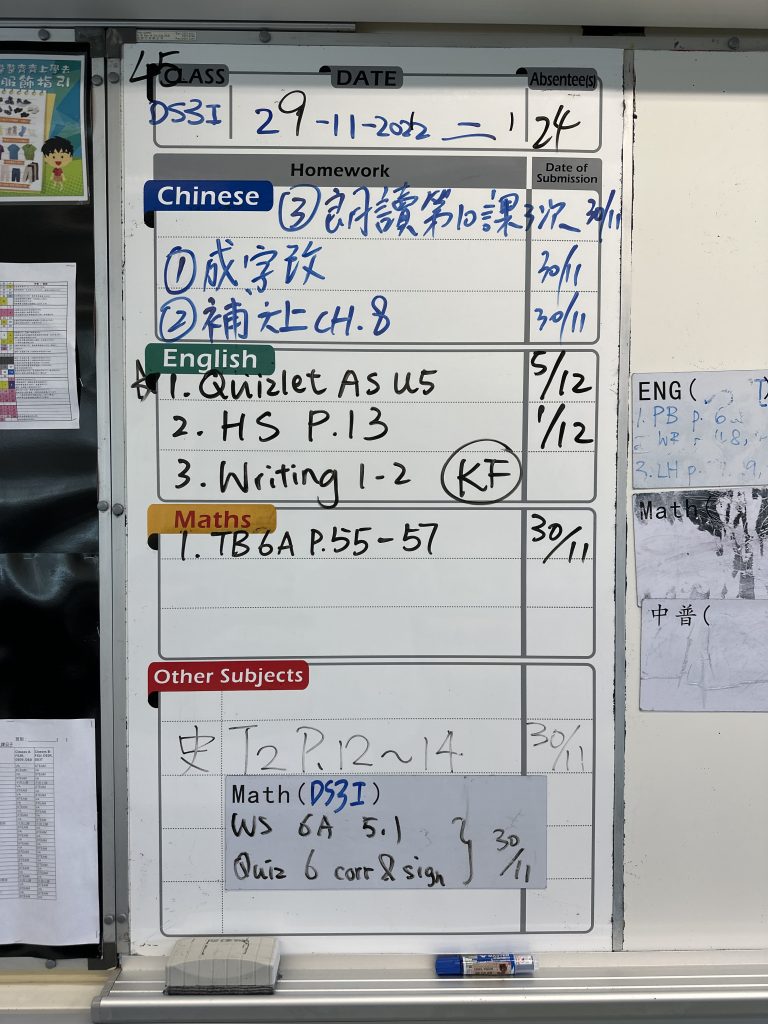 學齊齊上學去
服飾指引
4S
CLASS DATE Absentee(s)
DS3I 29-11-2022 二 1 24
Homework Date of Submission
Chinese ③朗讀第10課3次 30/11
①成字改 30/11
②補 CH.8 30/11
English
1. Quizlet As U5 5/12
2. HS P.13 1/12
3. Writing 1-2 KF
Maths
1. TB6A P.55-57 30/11
Other Subjects
史 T2 P.12~14 30/11
Math(DS3I)
WS 6A 5.1
Quiz 6 corr & sign } 30/11
ENG(
1. PB p. 6
3. LH p. 9,
Math(
中普(